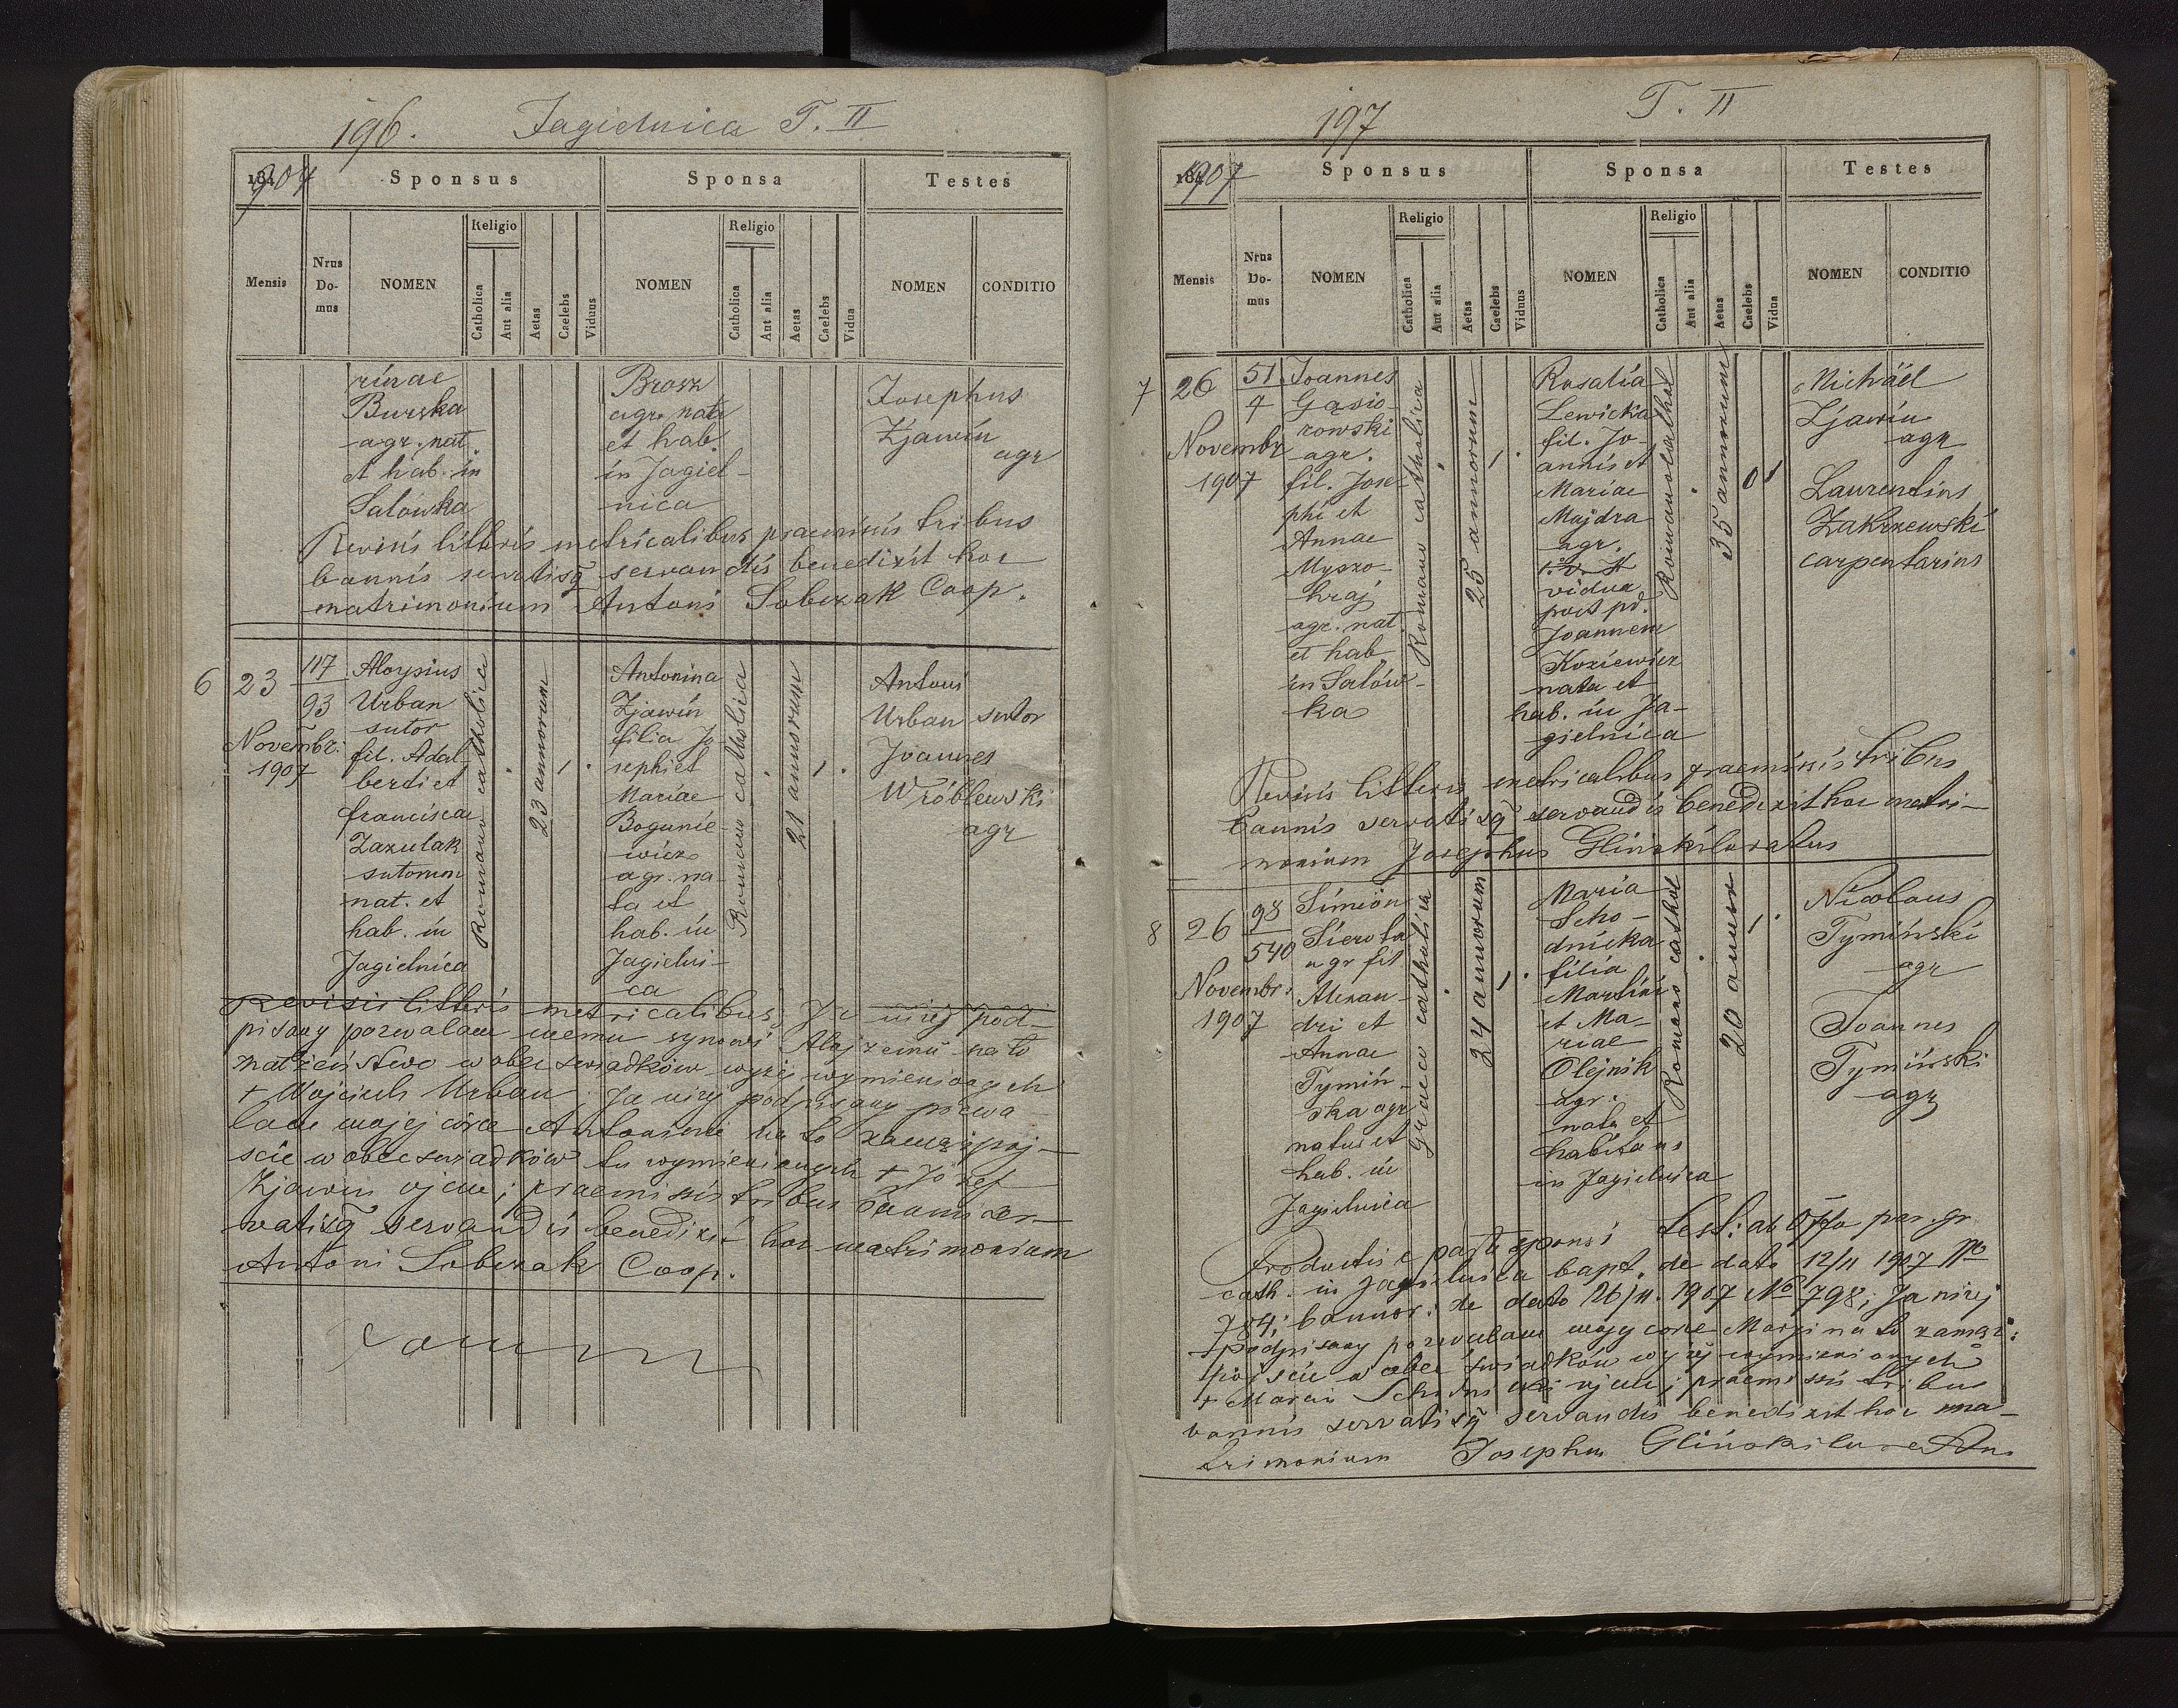 196. Jagielnica T. II
1907
Sponsus Sponsa Testes
Mensis
Nrus Do- mus
NOMEN
Religio
Catholica
Aut alia
Aetas
Caelebs
Viduus
NOMEN
Religio
Catholica
Aut alia
Aetas
Caelebs
Vidua
NOMEN
CONDITIO
rinae
Burska
agr. nat.
et hab. in
Salówka
Brosz
agr. nata
et hab.
in Jagiel-
nica
Josephus
Zjawin
agr
Revisis litteris metricalibus praemissis tribus
bannis servatisq̃ servandis benedixit hoc
matrimonium Antoni Sobczak Coop.
6 23
Novembr.
1907
117
93
Aloysius
Urban
sutor
fil. Adal
berti et
franciscae
Zazulak
sutorum
nat. et
hab. in
Jagielnica
Romano catholica
23 annorum
Antonina
Zjawin
filia Jo-
sephi et
Mariae
Bogunie-
wicz
agr. na-
ta et
hab. in
Jagielni-
ca
Romano catholica
21 annorum
Antoni
Urban sutor
Joannes
Wróblewski
agr
Revisis litteris metricalibus, Ja niżej pod-
pisany pozwalam memu synowi Alojzemu na to
małżeństwo wobec świadków wyżej wymienionych
+ Wojciech Urban; Ja niżej podpisany pozwa-
lam mojej córce Antoninie na to zamążpój-
ście wobec świadków tu wymienionych + Józef
Zjawin ojciec; praemissis tribus bannis ser-
vatisq̃ servandis benedixit hoc matrimonium
Antoni Sobczak Coop.
197 T. II
1907
Sponsus Sponsa Testes
Mensis
Nrus Do- mus
NOMEN
Religio
Catholica
Aut alia
Aetas
Caelebs
Viduus
NOMEN
Religio
Catholica
Aut alia
Aetas
Caelebs
Vidua
NOMEN
CONDITIO
7 26
Novembr
1907
51
4
Joannes
Gąsio-
rowski
agr.
fil. Jose
phi et
Annae
Myszo-
hraj
agr. nat.
et hab
in Salów-
ka
Romano catholica
25 annorum
Rosalia
Lewicka
fil. Jo-
annis et
Mariae
Majdra
agr.
vidua
post pd.
Joannem
Koziewicz
nata et
hab. in Ja-
gielnica
Romano cathol
35 annorum
Michäel
Zjawin
agr
Laurentius
Zakrzewski
carpentarius
Revisis litteris metricalibus praemissis tribus
bannis servatisq̃ servandis benedixit hoc matri-
monium Josephus Gliński curatus
8 26
Novembr.
1907
98
540
Simeon
Sierota
agr fil
Alexan-
dri et
Annae
Tymiń-
ska agr
natus et
hab. in
Jagielnica
Graeco catholica
24 annorum
Maria
Scho-
dnicka
filia
Martini
et Ma-
riae
Olejnik
agr.
nata et
habitans
in Jagielnica
Romano cathol
20 annor
Nicolaus
Tymiński
agr
Joannes
Tymiński
agr
Productis e parte sponsi test: ab Offo par. gr.
cath. in Jagielnica bapt. de dato 12/11 1907 No
784; bannor: de dato 26/11. 1907 No 798; Ja niżej
podpisany pozwalam mojej córce Marji na to zamąż-
pójście wobec świadków wyżej wymienionych
+ Marcin Schodnicki ojciec; praemissis tribus
bannis servatisq̃ servandis benedixit hoc ma-
trimonium Josephus Gliński curatus